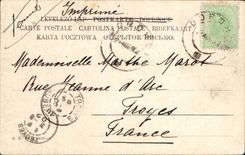 Imprimé
LEVELEZŐ-LAP POSTKARTE
CARTE POSTALE CARTOLINA POSTALE BRIEFKAART
КАРТА ПОЧТОВАЯ ОТКРЫТОЕ ПИСЬМО.
Mademoiselle Marthe Marot
Rue Jeanne d'Arc
Troyes
France
TROYES
AUBE